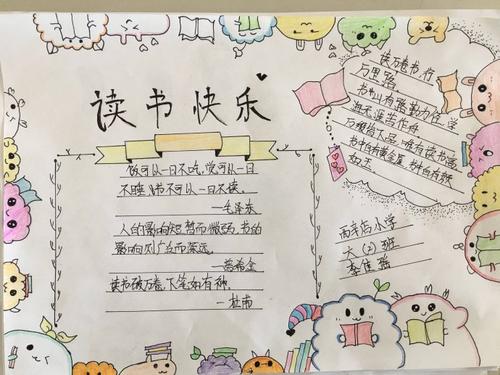 读书快乐
饭可以一日不吃,觉可以一日
不睡,书不可以一日不读。
—毛泽东
人的影响短暂而微弱,书的
影响则广泛而深远。
—普希金
读书破万卷,下笔如有神。
—杜甫
读万卷书,行
万里路。
书山有路勤为径,学
海无涯苦作舟
万般皆下品,唯有读书高
书中自有黄金屋,书中自有颜
如玉。
小学
六(2)班
李佳